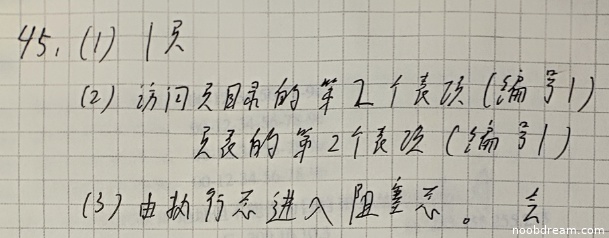 45. (1) 1页
(2) 访问页目录的第2个表项(编号1)
页表的第2个表项(编号1)
(3) 由执行态进入阻塞态。 会
noobdream.com